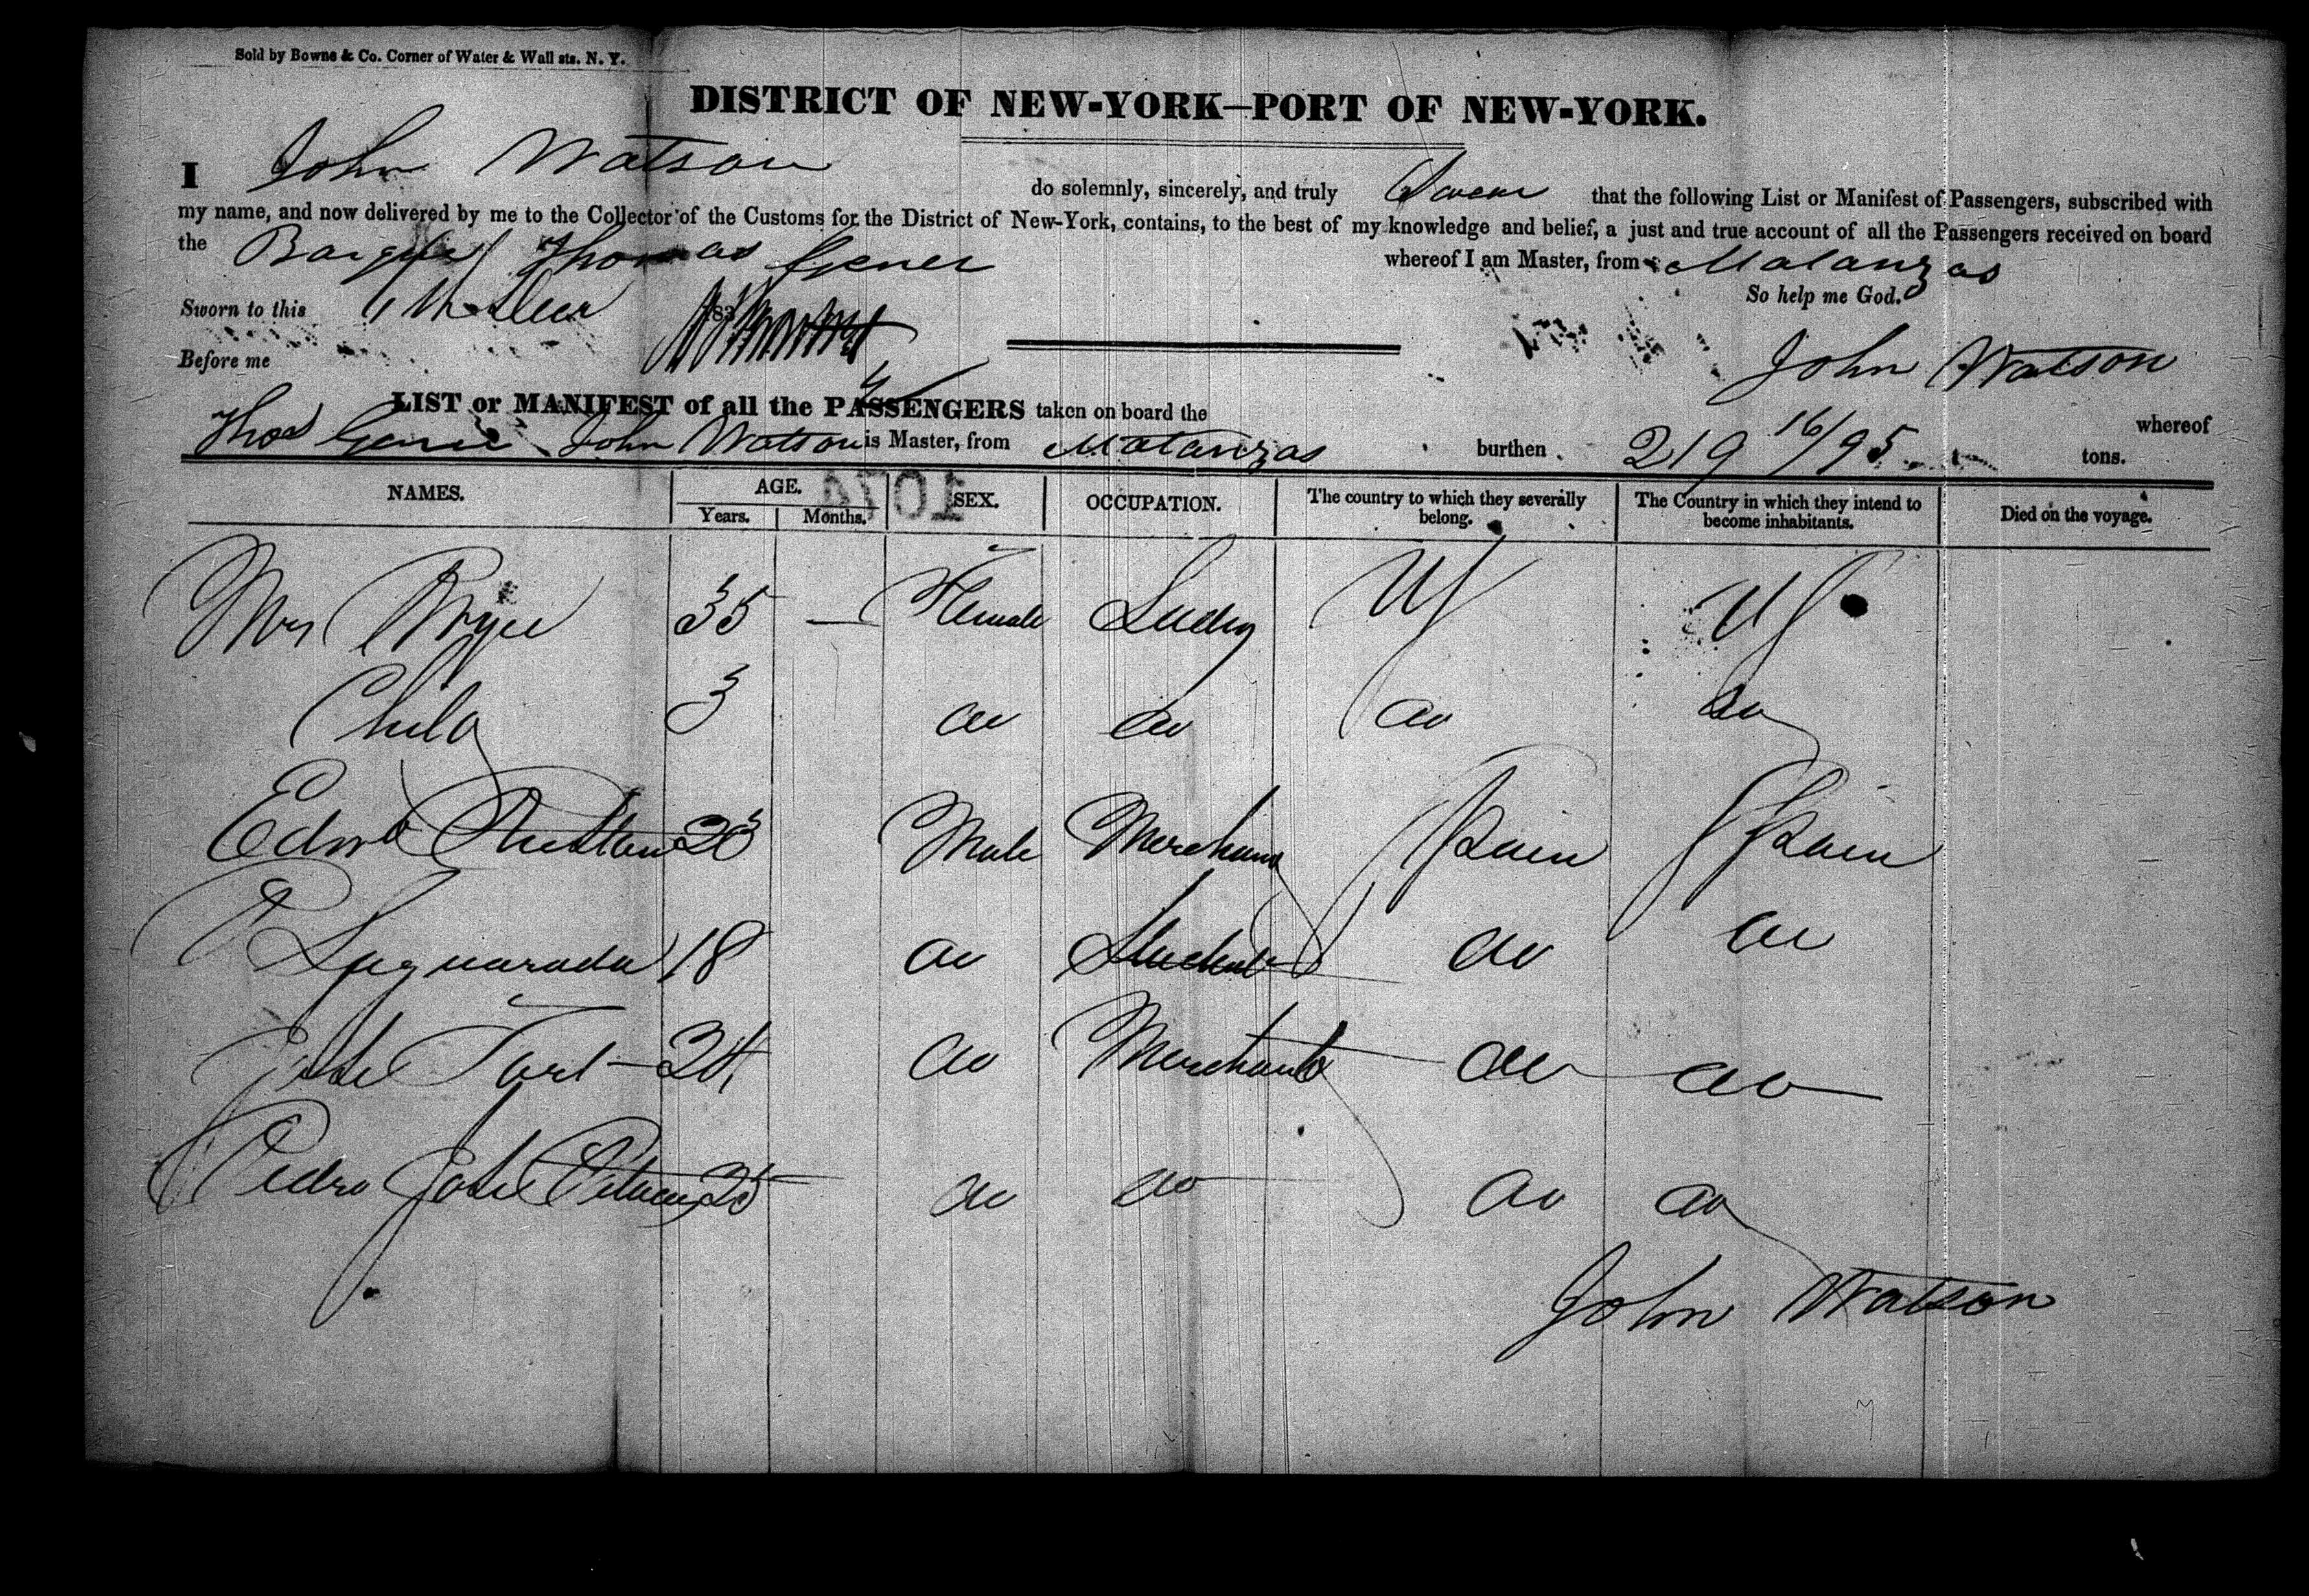 Sold by Bowne & Co. Corner of Water & Wall sts. N. Y.
DISTRICT OF NEW-YORK—PORT OF NEW-YORK.
I John Watson do solemnly, sincerely, and truly Swear that the following List or Manifest of Passengers, subscribed with
my name, and now delivered by me to the Collector of the Customs for the District of New-York, contains, to the best of my knowledge and belief, a just and true account of all the Passengers received on board
the Barque Thomas Gener whereof I am Master, from Matanzas
So help me God.
Sworn to this 183
Before me
John Watson
LIST or MANIFEST of all the PASSENGERS taken on board the
whereof
Thos John Watson is Master, from Matanzas burthen 219 16/95 tons.
1074
NAMES. AGE. SEX. OCCUPATION. The country to which they severally belong. The Country in which they intend to become inhabitants. Died on the voyage.
Years. Months.
Mrs 35 — Female Lady US US
Child 3 do do do do
Edwd Male Merchant Spain Spain
P 18 do Student do do
Jose 24 do Merchant do do
Pedro Jose 25 do do do do
John Watson